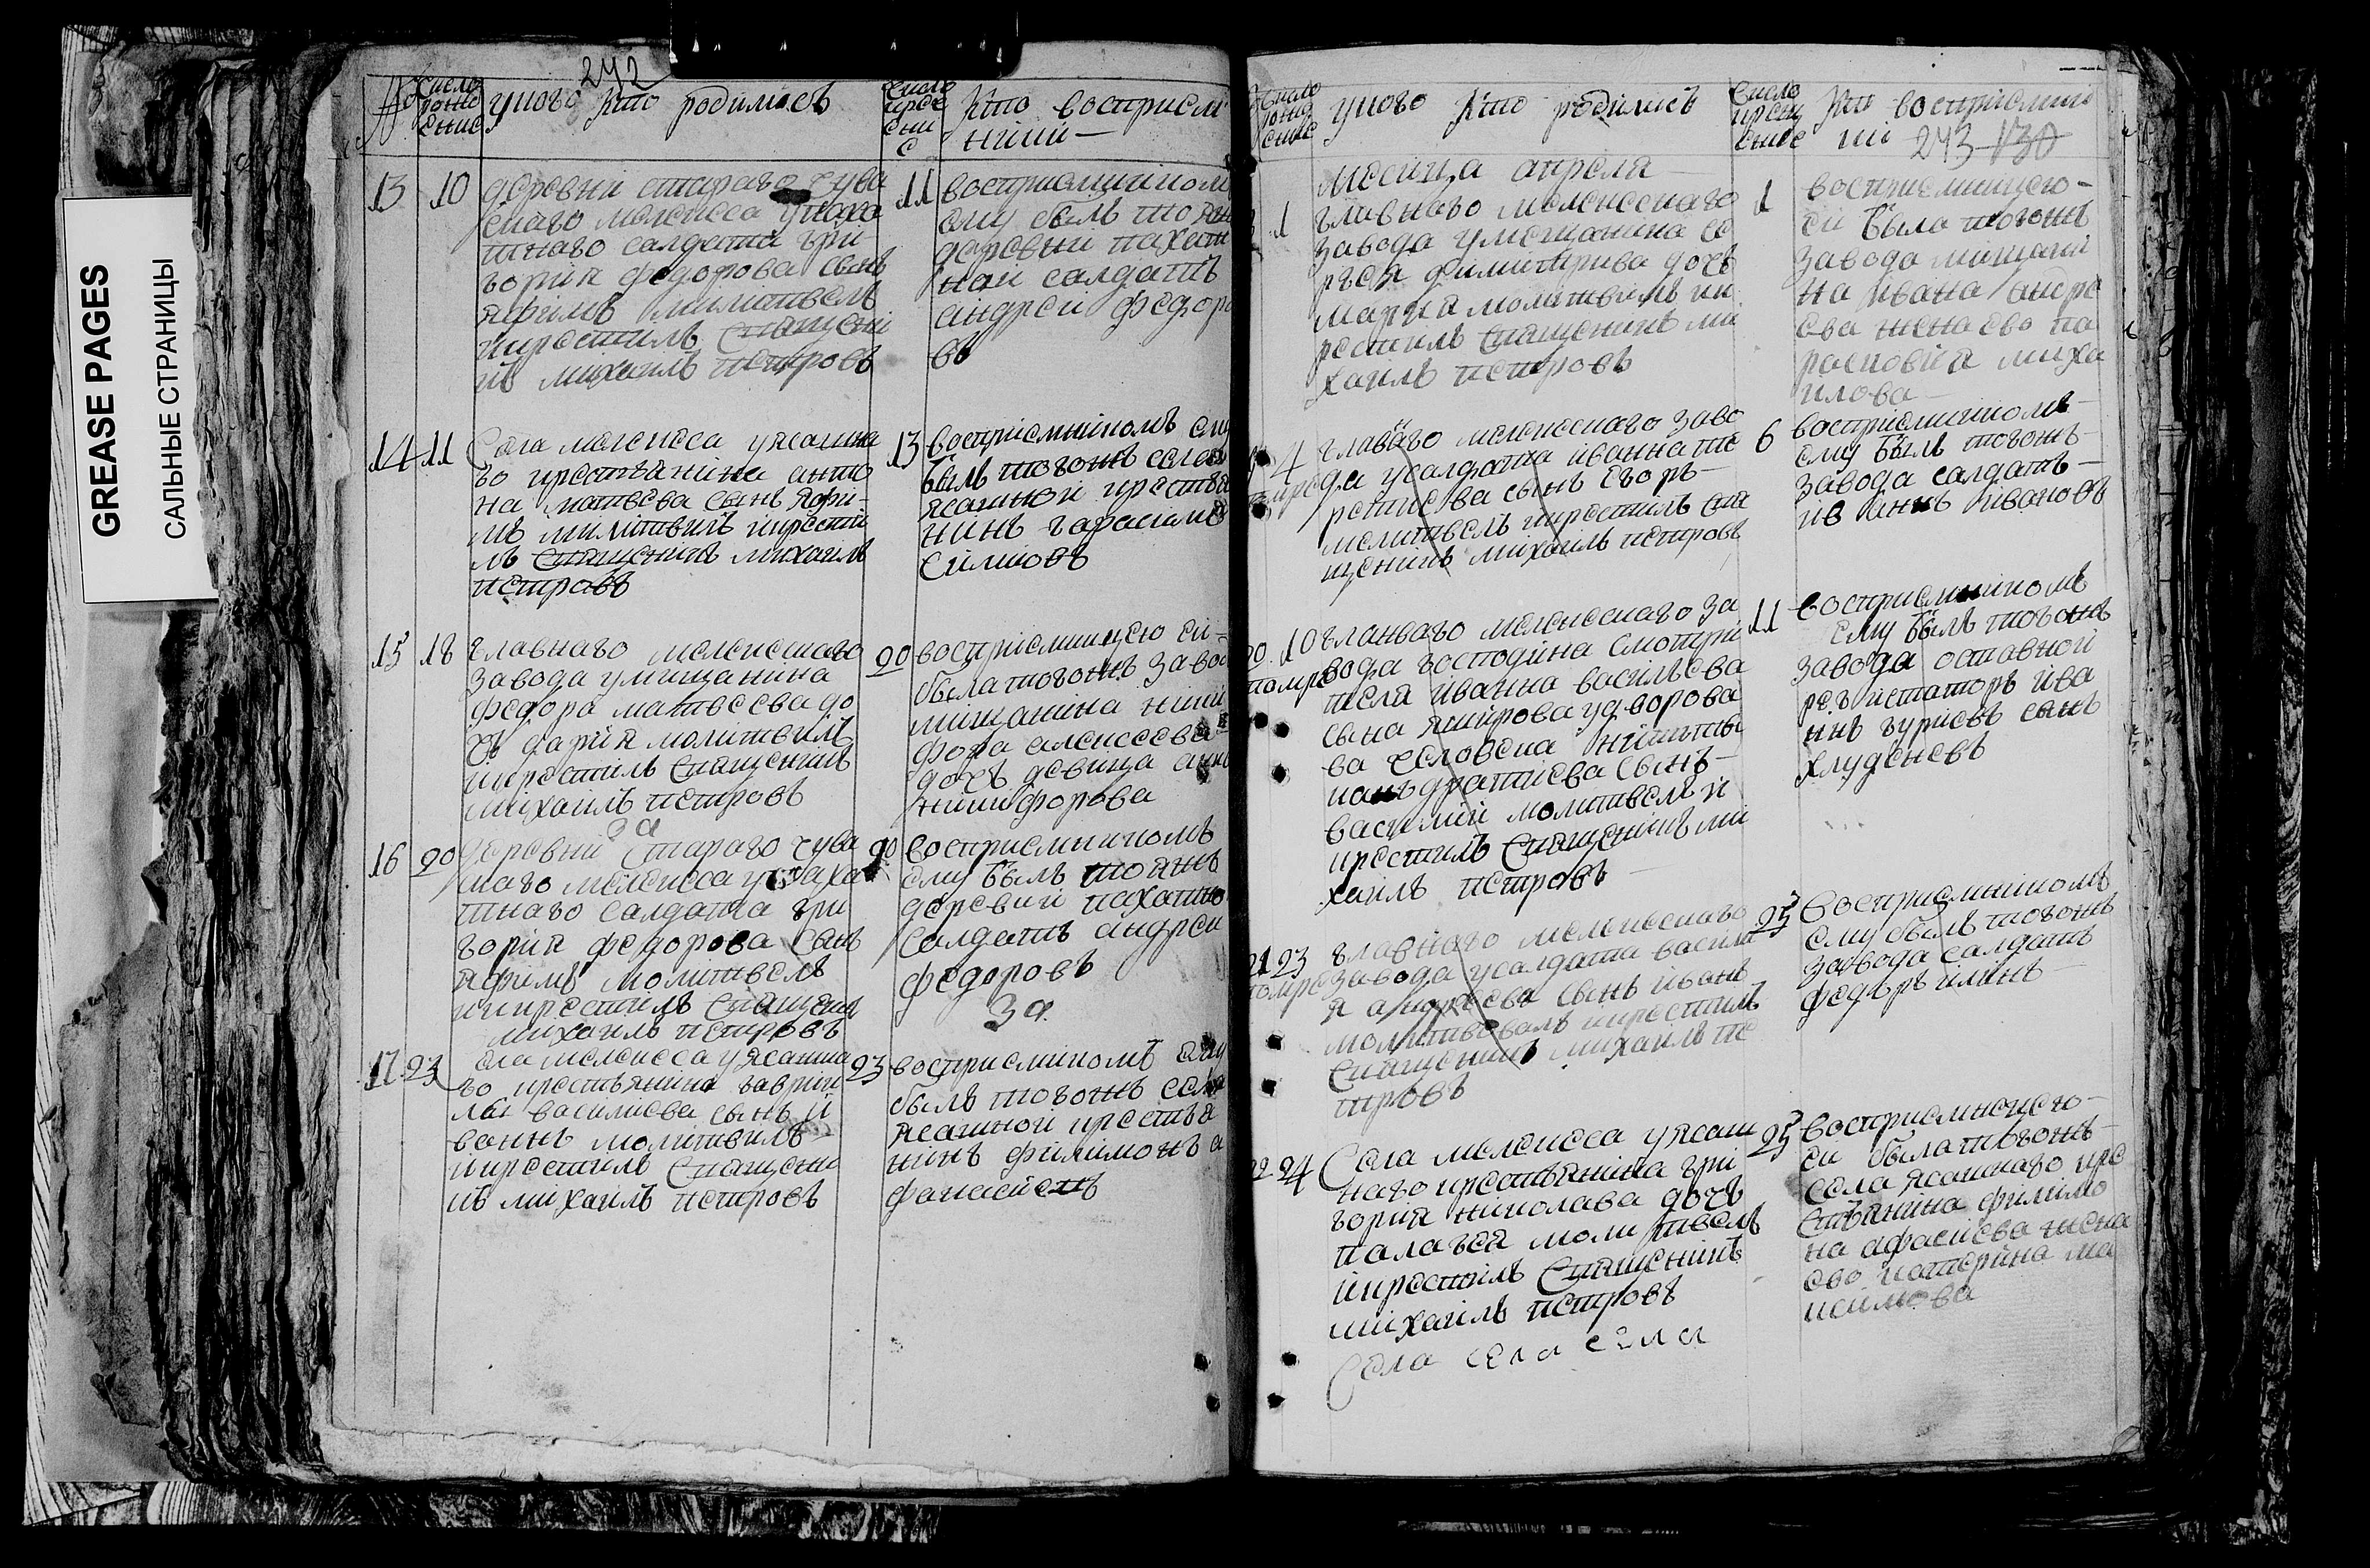 GREASE PAGES
САЛЬНЫЕ СТРАНИЦЫ
242
№
Число
рожд
ение
у кого кто родилисъ
Число
креще
ни
е
кто восприем
ники
13
10
деревни стараго чува
шаго мелекеса у паха
тнаго салдата гри
гория федорова сынъ
яфимъ молитвелъ
икрестилъ священни
къ михаилъ петровъ
11
восприемникомъ
ему былъ тоя жъ
деревни пахатн
ной салдатъ
андрей федоро
въ
14
11
Села мелекеса у ясашна
го крестьянина анто
на матвева сынъ яфи
мъ милитвилъ икрести
лъ священникъ михаилъ
петровъ
13
восприемникомъ ему
былъ тогожъ села
ясашной крестья
нинъ гарасимъ
Силиовъ
15
18
главнаго мелекескаго
завода у мищанина
федора матвеева до
чь дария молитвилъ
икрестилъ священникъ
михаилъ петровъ
20
восприемницею ей
была тогожъ завод
мищанина ники
фора алексеева
дочь девица анна
никифорова
за
16
20
деревни Стараго чува
шаго мелекеса у паха
тнаго салдата гри
гория федорова сынъ
яфимъ молитвелъ
икрестилъ священ
михаилъ петровъ
20
восприемникомъ
ему былъ тояжъ
деревни пахатно
салдатъ андреи
федоровъ
за
17
23
села мелекеса у ясашна
го крестьянина гаврии
лы василиева сынъ и
ваннъ молитвилъ
икрестилъ священни
къ михаилъ петровъ
23
восприемникомъ ему
былъ тогожъ села
ясашной крестья
нинъ филимонъ а
фанасиевъ
Число
рожд
ение
у кого кто родилисъ
Число
крещ
ение
кто восприемни
ки
243 130
месяца апреля
1
главнаго мелекескаго
завода у мещанина се
ргея димитрива дочь
мария молитвилъ ик
рестилъ священникъ ми
хаилъ петровъ
1
восприемницею
ей была тогожъ
завода мищани
на ивана андре
ева жена ево па
расковия миха
илова
4
главнаго мелекескаго заво
да у салдата иванна те
рентиева сынъ егоръ
молитвелъ икрестилъ свя
щеникъ михаилъ петровъ
6
восприемникомъ
ему былъ тогожъ
завода салдатъ
иванъ ивановъ
помре
10
главнаго мелекескаго за
вода господина Смотри
теля иванна васильева
сына яширова у дворова
ва человека никиты
кандратиева сынъ
василий молитвелъ и
крестилъ священникъ ми
хаилъ петровъ
11
восприемникомъ
ему былъ тогожъ
завода оставной
регистаторъ ива
ннъ гуриевъ сынъ
хлуденевъ
помре
21
23
главнаго мелекескаго
завода у салдата васили
я андреева сынъ иванъ
молитвовалъ икрестилъ
священникъ михаилъ пе
тровъ
25
восприемникомъ
ему былъ тогожъ
завода салдатъ
федоръ илинъ
помре
22
24
Села мелекеса у ясаш
наго крестьянина гри
гория николава дочь
палагея молитвелъ
икрестилъ Священникъ
михаилъ петровъ
25
восприемницею
ей была тогожъ
села ясашнаго кре
стьянина филимо
на афасиева жена
ево катерина ма
ксимова
Села села села